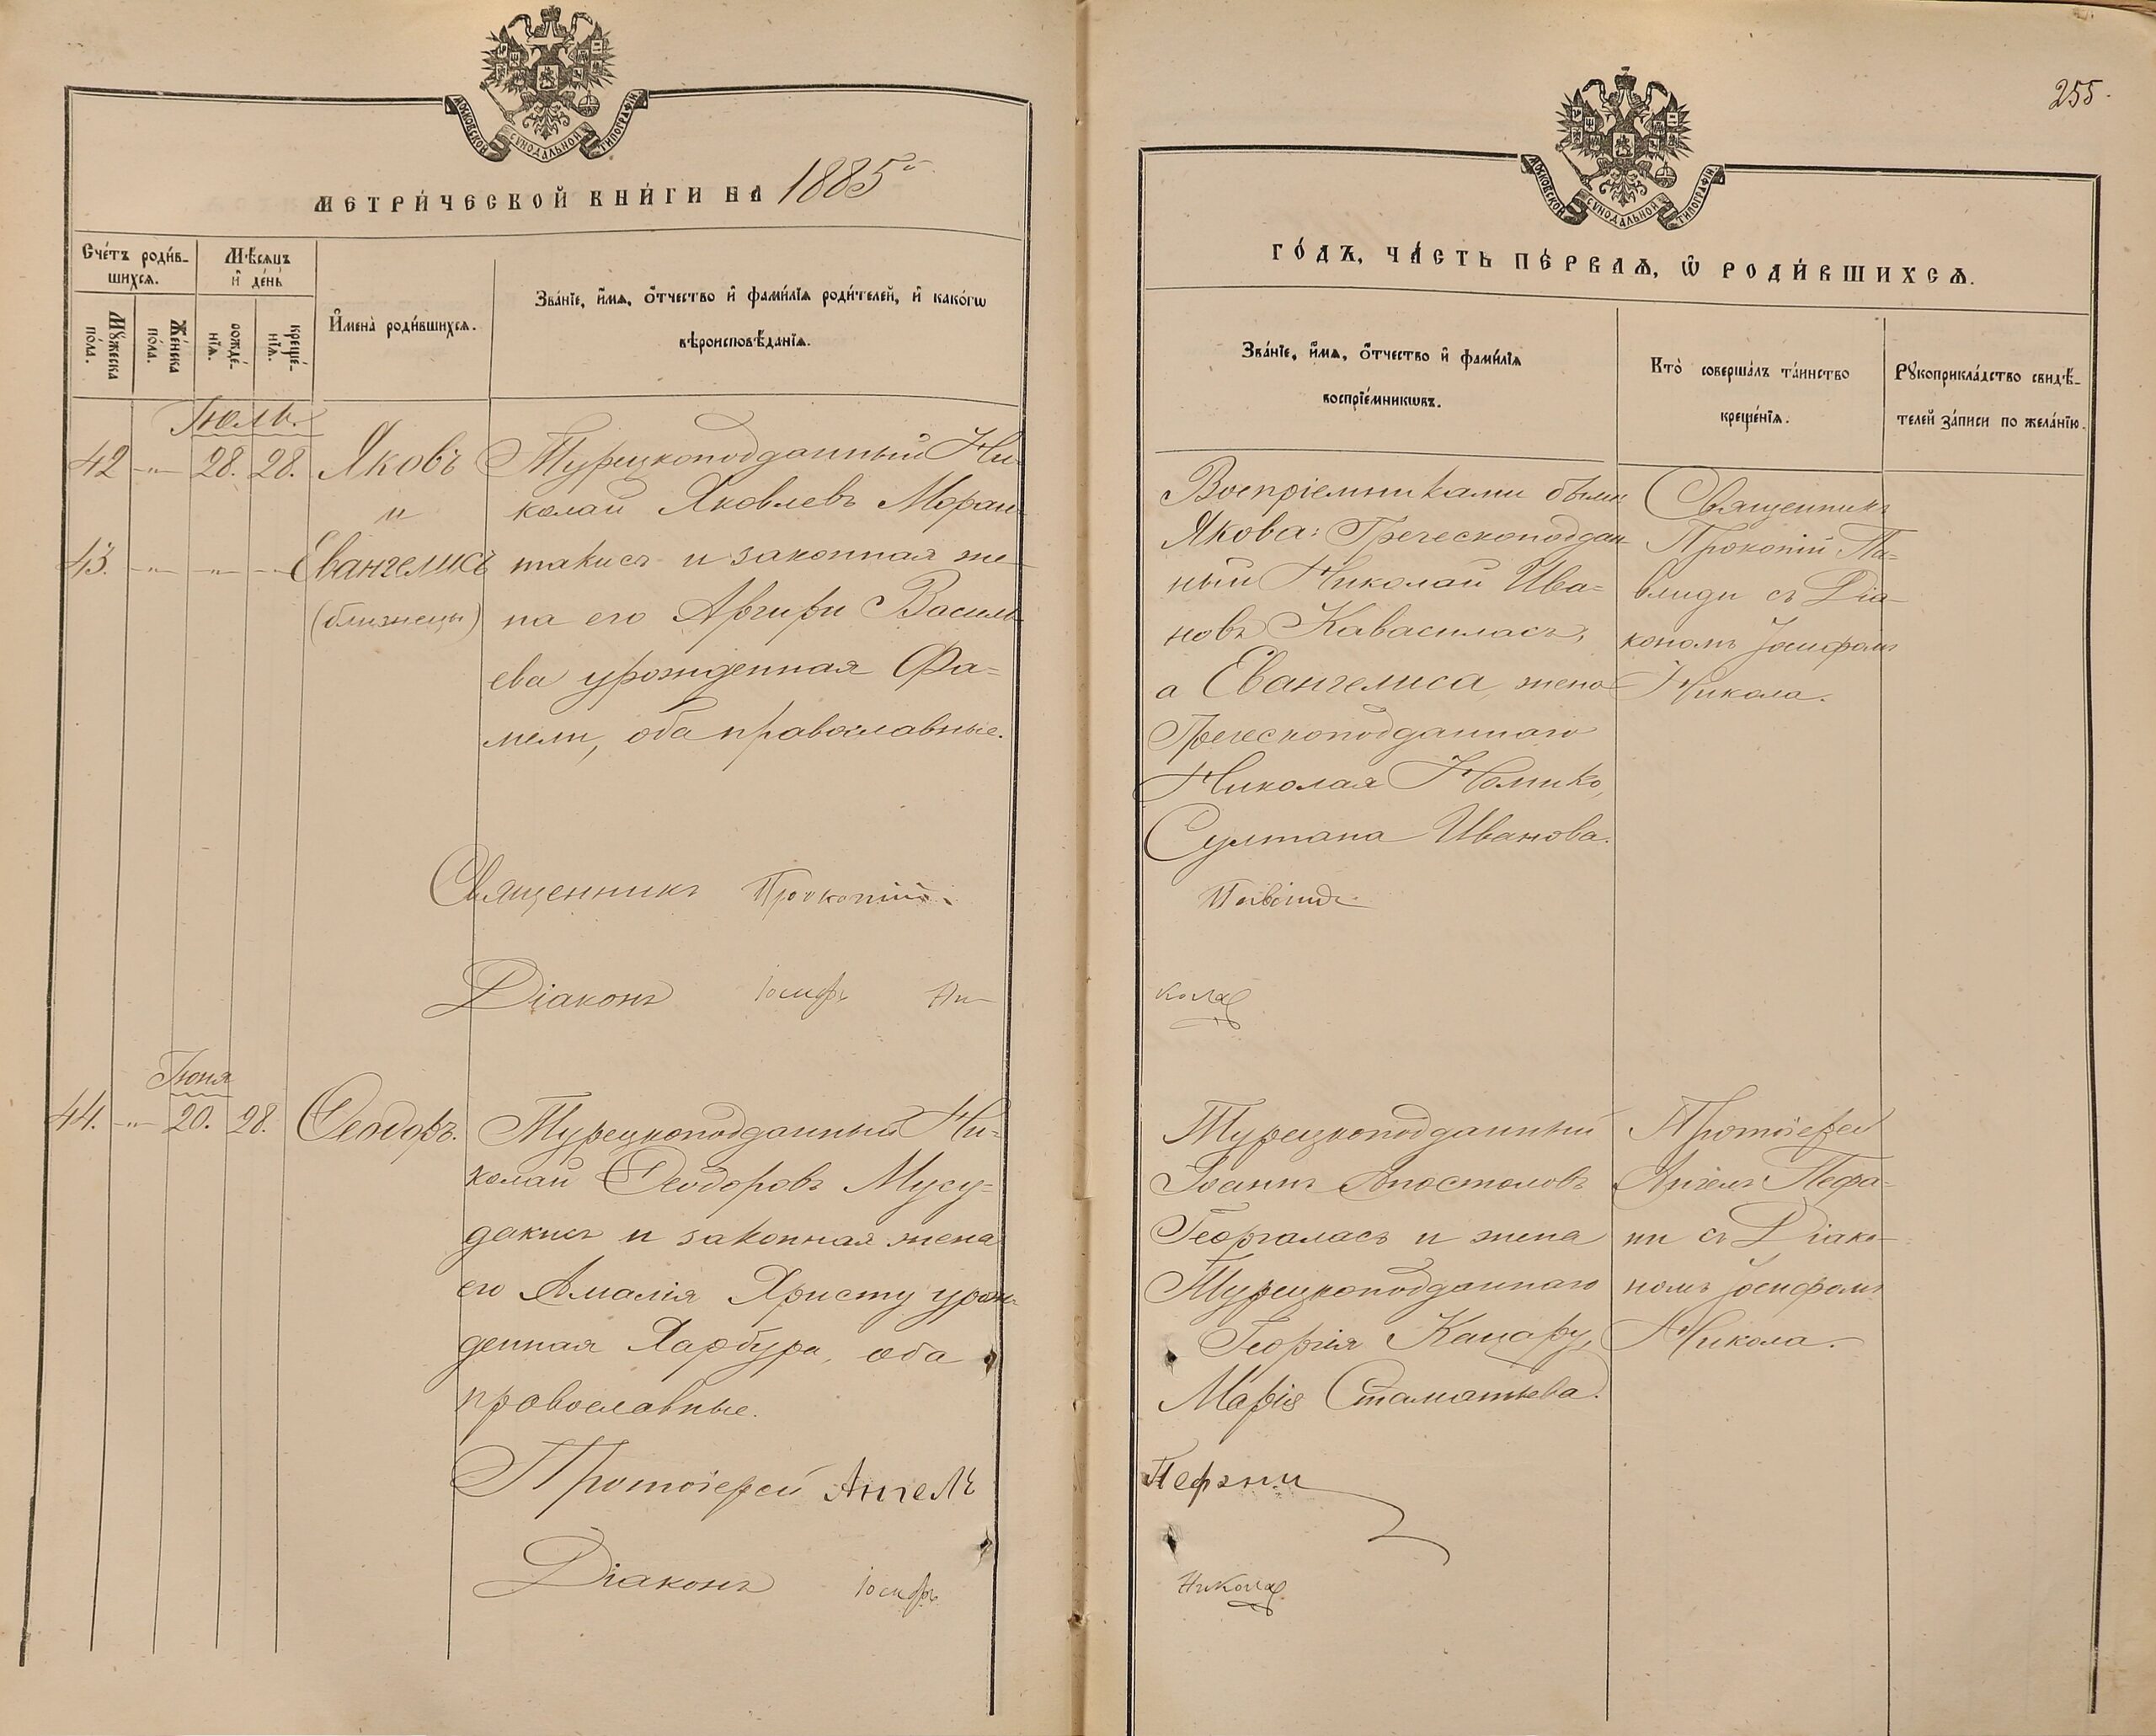 МОСКОВСКОЙ СѴНОДАЛЬНОЙ ТИПОГРАФІИ
МЕТРИ́ЧЕСКОЙ КНИ́ГИ НА 1885й
Сче́тъ роди́в-
шихсѧ.
Мѣ́сѧцъ
и҆ де́нь
Мꙋ́жеска
по́ла.
Же́нска
по́ла.
рожде́-
нїѧ.
креще́-
нїѧ.
И҆мена̀ роди́вшихсѧ.
Зва́нїе, и҆́мѧ, ѻ҆́тчество и҆ фами́лїѧ роди́телей, и҆ како́гѡ
вѣроисповѣ́данїѧ.
Іюль.
42 -"- 28. 28. Яковъ Турецкоподданный Ни-
и колай Яковлевъ Моран-
43. -"- -"- -"- Евангелисъ такисъ и законная же-
(близнецы) на его Аргири Василь-
ева урожденная Фа-
мели, оба православные.
Священникъ Прокопій
Діаконъ Іосифъ Ни-
Іюня
44. -"- 20. 28. Ѳеодоръ. Турецкоподданный Ни-
колай Ѳеодоровъ Мусу-
дакисъ и законная жена
его Амалія Христу урож-
денная Харбури, оба
православные.
Протоіерей Ангелъ
Діаконъ Іосифъ
255.
МОСКОВСКОЙ СѴНОДАЛЬНОЙ ТИПОГРАФІИ
ГО́ДЪ, ЧА́СТЬ ПЕ́РВАѦ, Ѡ҆ РОДИ́ВШИХСѦ.
Зва́нїе, и҆́мѧ, ѻ҆́тчество и҆ фами́лїѧ
воспрїе́мникѡвъ.
Кто̀ соверша́лъ та́инство
креще́нїѧ.
Рꙋкоприкла́дство свидѣ́-
телей за́писи по жела́нїю.
Воспріемниками были
Якова: Греческоподдан-
ный Николай Ива-
новъ Кавасиласъ,
а Евангелиса, жена
Греческоподданнаго
Николая Номико,
Султана Иванова.
Священникъ
Прокопій Па-
влиди съ Діа-
кономъ Іосифомъ
Никола.
кола
Турецкоподданный
Іоаннъ Апостоловъ
Георгаласъ и жена
Турецкоподданнаго
Георгія Кацару,
Марія Стаматьева.
Протоіерей
Ангелъ Пефа-
ни съ Діако-
номъ Іосифомъ
Никола.
Пефани
Никола